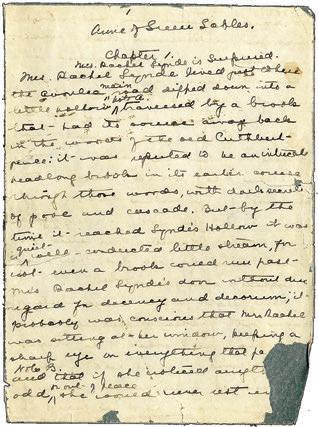 Anne of Green Gables.
Chapter 1.
Mrs. Rachel Lynde is Surprised.
Mrs. Rachel Lynde lived just where
the Avonlea main road dipped down into a
little hollow traversed by a brook
that had its source away back
in the woods of the old Cuthbert
place; it was reputed to be an intricate
headlong brook in its earlier course
through those woods, with dark secrets
of pool and cascade. But by the
time it reached Lynde's Hollow it was
a quiet well-conducted little stream, for
not even a brook could run past
Mrs Rachel Lynde's door without due
regard for decency and decorum; it
probably was conscious that Mrs Rachel
was sitting at her window, keeping a
sharp eye on everything that pa
Note B.
and that if she noticed anyth
odd or out of place she would never rest